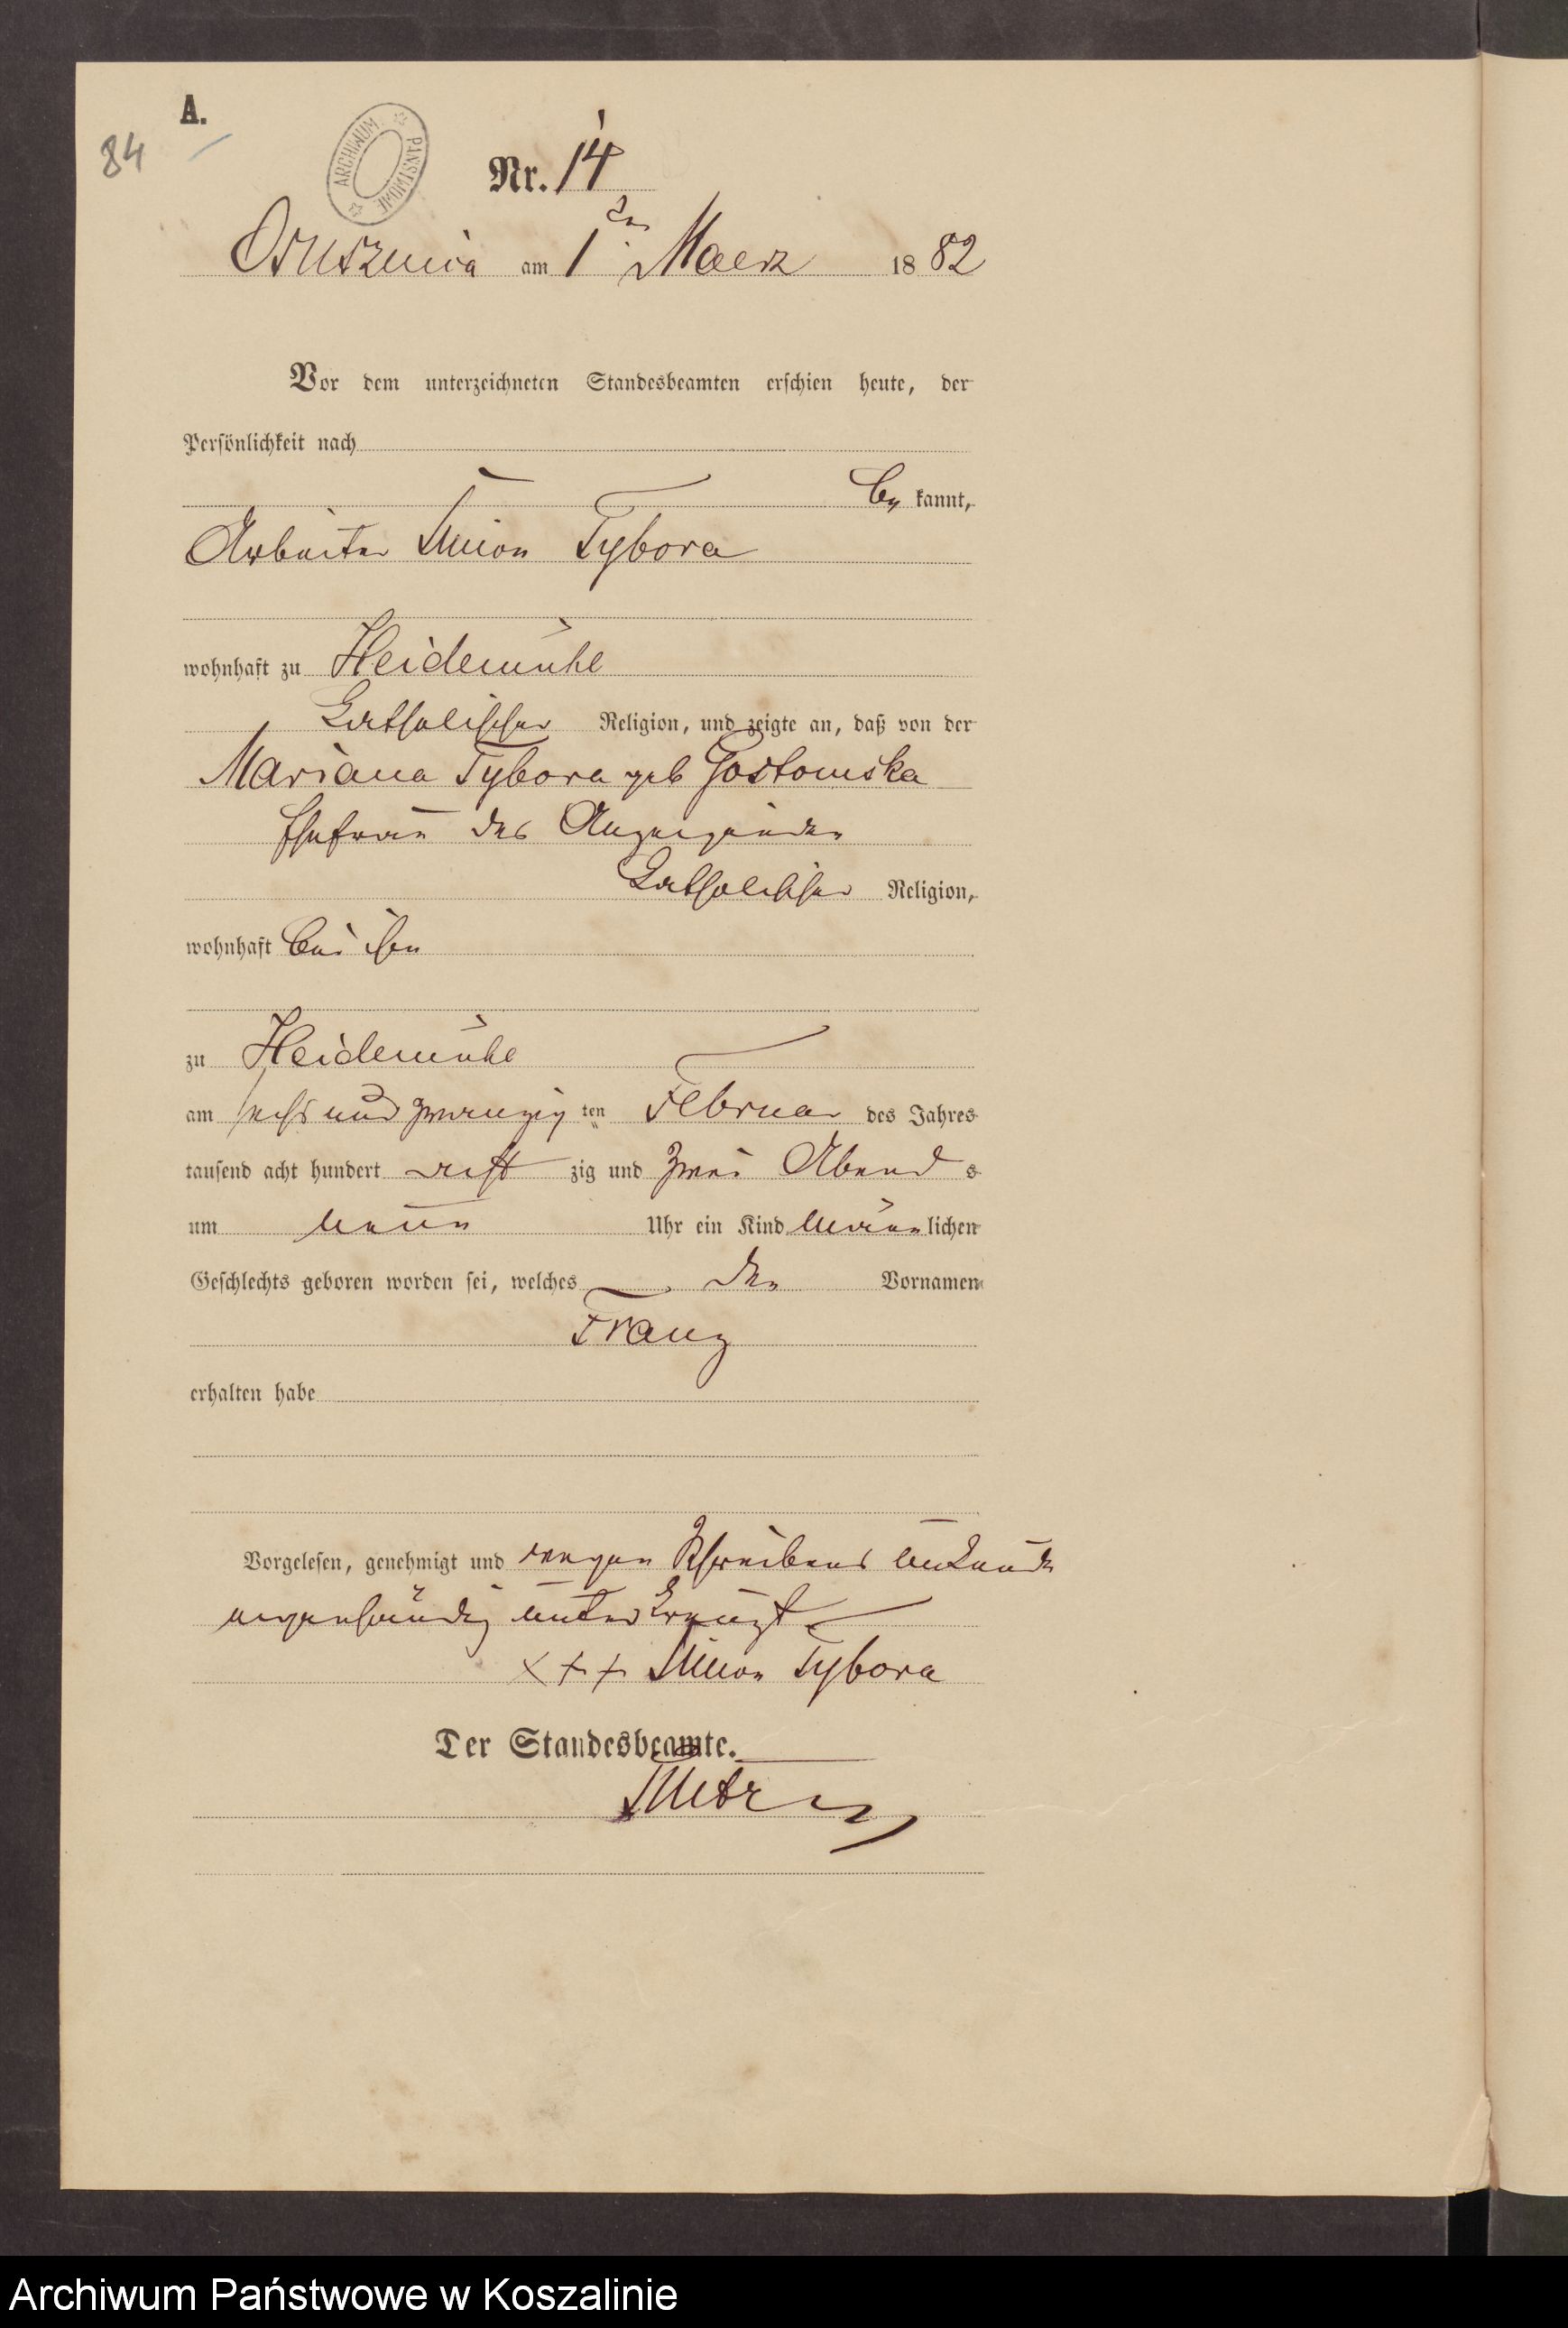 A.
84
ARCHIWUM PAŃSTWOWE
Nr. 14
Osuszniça am 1ten Maerz 1882
Vor dem unterzeichneten Standesbeamten erschien heute, der
Persönlichkeit nach
be kannt,
Arbeiter Simon Tybora
wohnhaft zu Heidemühl
katholischer Religion, und zeigte an, daß von der
Mariana Tybora geb Gostomska
Ehefrau des Anzeigenden
katholischer Religion,
wohnhaft bei ihm
zu Heidemühl
am sechs und zwanzig ten Februar des Jahres
tausend acht hundert acht zig und zwei Abend s
um neun Uhr ein Kind männlichen
Geschlechts geboren worden sei, welches den Vornamen
Franz
erhalten habe
Vorgelesen, genehmigt und wegen Schreibens unkunde
eigenhändig unterkreuzt
+++ Simon Tybora
Der Standesbeamte.
Archiwum Państwowe w Koszalinie